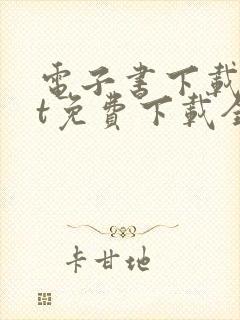 電子書下載
t免費下載全
卡甘地